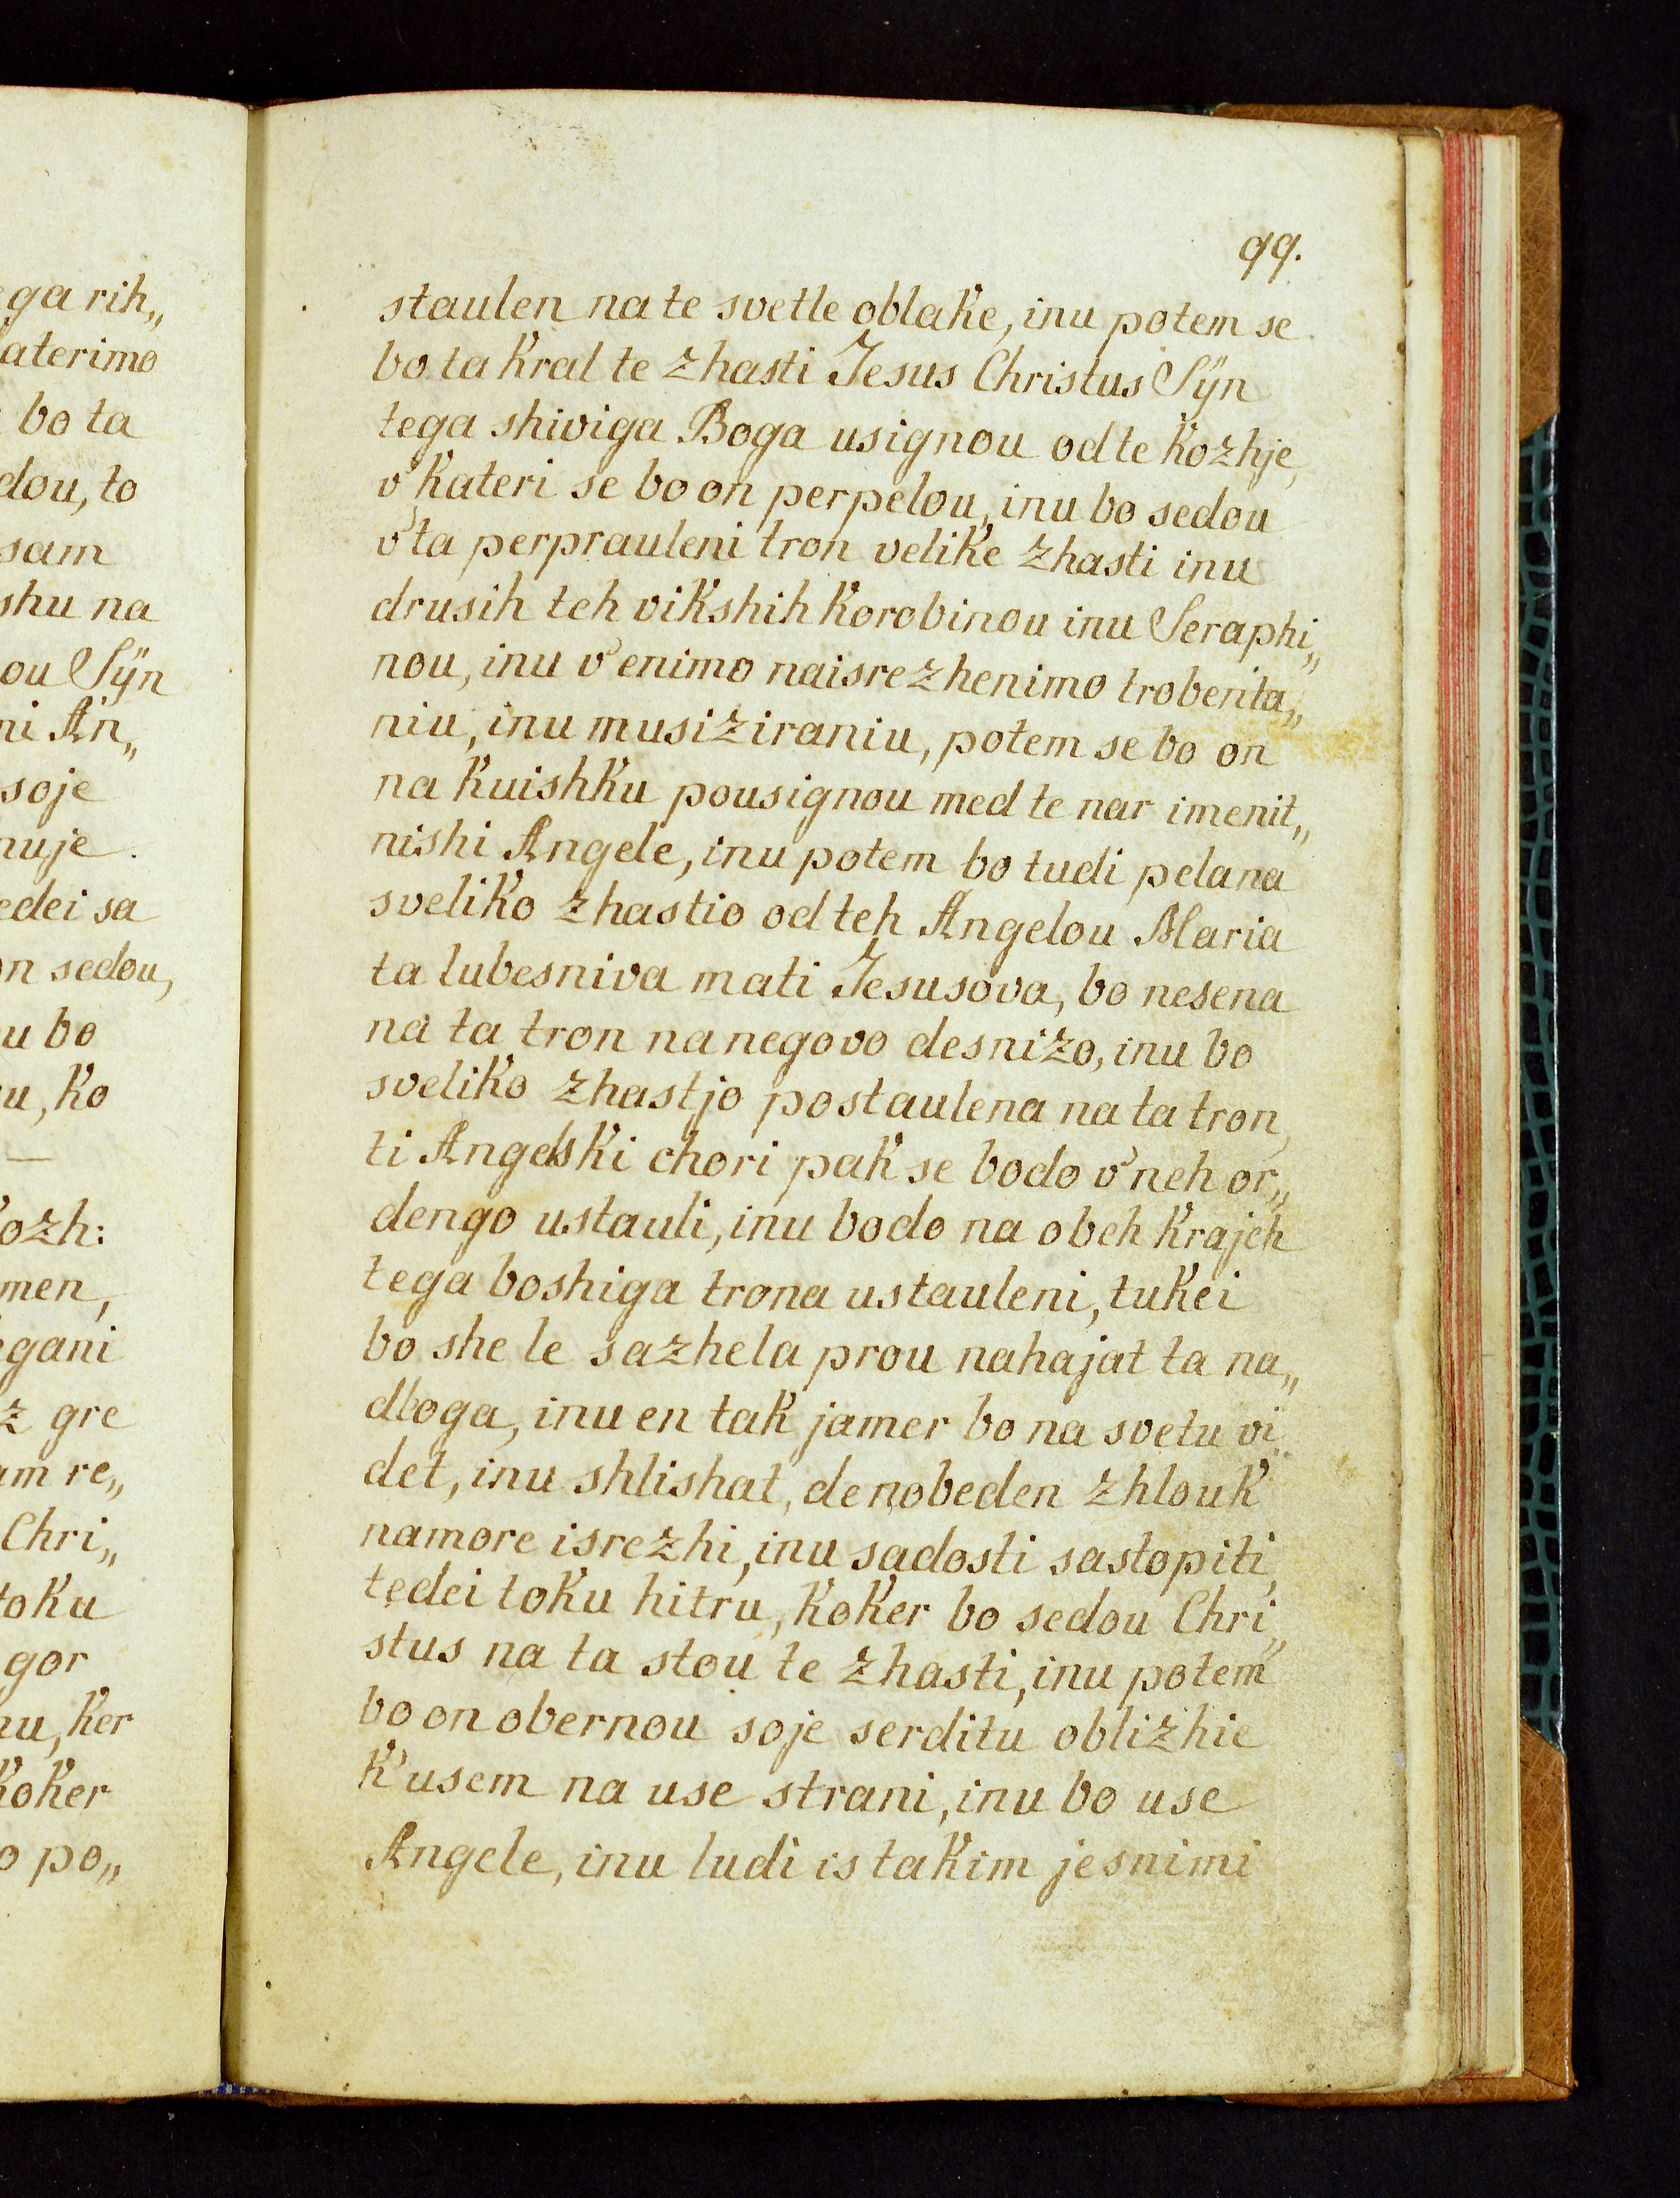 ga rih„
aterimo
bo ta
dou, to
sam
shu na
ou Sÿn
ni An„
soje
nuje.
edei sa
on sedou,
u bo
u, ko
—
ozh:
men,
gani
z gre
am re„
Chri„
toku
gor
nu, ker
koker
o po„
99.
staulen na te svetle oblake, inu potem se
bo ta kral te zhasti Jesus Christus Sÿn
tega shiviga Boga usignou od te kozhje,
v' kateri se bo on perpelou, inu bo sedou
v' ta perprauleni tron velike zhasti inu
drusih teh vikshih korobinou inu Seraphi„
nou, inu v' enimo naisrezhenimo trobenta„
niu, inu musiziraniu, potem se bo on
na kuishku pousignou med te nar imenit„
nishi Angele, inu potem bo tudi pelana
sveliko zhastio od teh Angelou Maria
ta lubesniva mati Jesusova, bo nesena
na ta tron na negovo desnizo, inu bo
sveliko zhastjo postaulena na ta tron,
ti Angelski chori pak se bodo v' neh or„
dengo ustauli, inu bodo na obeh krajeh
tega boshiga trona ustauleni, tukei
bo she le sazhela prou nahajat ta na„
dloga, inu en tak jamer bo na svetu vi„
det, inu shlishat, de nobeden zhlouk
namore isrezhi, inu sadosti sastopiti,
tedei toku hitru, koker bo sedou Chri„
stus na ta stou te zhasti, inu potem
bo on obernou soje serditu oblizhie
k' usem na use strani, inu bo use
Angele, inu ludi is takim jesnimi